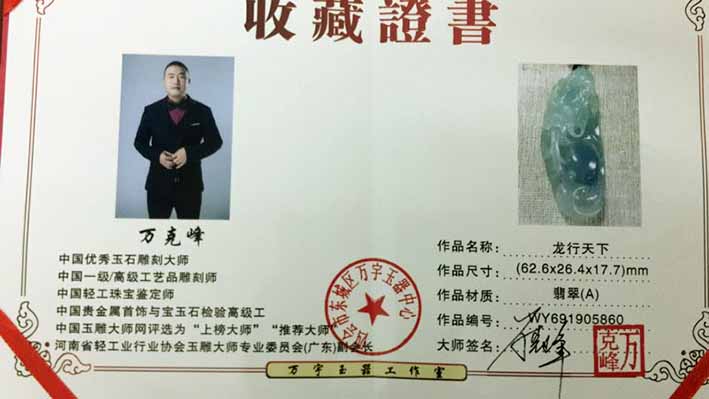 收藏證書
万克峰
中国优秀玉石雕刻大师
中国一级/高级工艺品雕刻师
中国轻工珠宝鉴定师
中国贵金属首饰与宝玉石检验高级工
中国玉雕大师网评选为“上榜大师”“推荐大师”
河南省轻工业行业协会玉雕大师专业委员会(广东)副会长
作品名称: 龙行天下
作品尺寸: (62.6x26.4x17.7)mm
作品材质: 翡翠(A)
作品编号: WY691905860
大师签名:
万克峰
市东城区万宇玉器中心
万宇玉器工作室